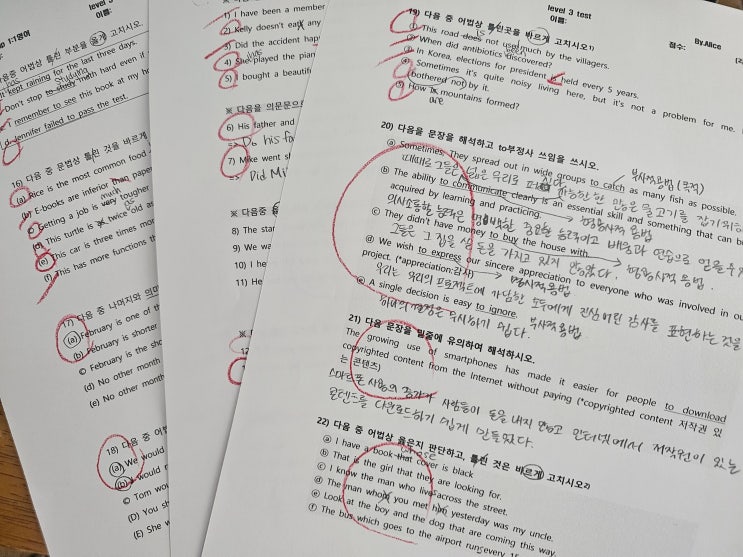 1:1영어
이름:
다음중 어법상 틀린 부분을 옳게 고치시오.
kept raining for the last three days.
Don't stop to study math hard even if
studying
I remember to see this book at my ho
Jennifer failed to pass the test.
16) 다음 중 문법상 틀린 것을 바르게
(a) Rice is the most common food
(b) E-books are inferior than paper
(c) Getting a job is very tougher
much
(d) This turtle is twice old as
as
(e) This car is three times more
(f) This has more functions th
17) 다음 중 나머지와 의미
(a) February is one of th
(b) February is shorter
© February is the sho
(d) No other month
(e) No other month
18) 다음 중 어법
(a) We would
(b) I would
© Tom wo
(D) You sh
(E) She w
level
이름:
1) I have been a member
2) Kelly doesn't eat any
3) Did the accident hap
4) She played the pian
was
5) I bought a beautifu
※ 다음을 의문문으
6) His father and
⇒ Do his fa
7) Mike went s
⇒ Did Mi
※ 다음중
8) The star
9) We wa
10) I he
11) He
level 3 test
이름:
점수:
By.Alice
19) 다음 중 어법상 틀린곳을 바르게 고치시오1)
① This road does not used much by the villagers.
is
② When did antibiotics discovered?
were
③ In Korea, elections for president is held every 5 years.
④ Sometimes it's quite noisy living here, but it's not a problem for me. I
(bothered not) by it.
⑤ How is mountains formed?
are
20) 다음을 문장을 해석하고 to부정사 쓰임을 쓰시오.
ⓐ Sometimes, They spread out in wide groups to catch as many fish as possible.
부사적용법 (목적)
ⓑ The ability to communicate clearly is an essential skill and something that can b
acquired by learning and practicing.
형용사적 용법
ⓒ They didn't have money to buy the house with.
그들은 그 집을 살 돈을 가지고 있지 않았다.
형용사적 용법.
ⓓ We wish to express our sincere appreciation to everyone who was involved in ou
project. (*appreciation:감사)
명사적용법
우리는 우리의 프로젝트에 가담한 모두에게 진심어린 감사를 표현하는 것을
ⓔ A single decision is easy to ignore.
하나의 결정은 무시하기 쉽다.
부사적용법
21) 다음 문장을 밑줄에 유의하여 해석하시오.
The growing use of smartphones has made it easier for people to download
copyrighted content from the Internet without paying (*copyrighted content 저작권 있
는 콘텐츠)
스마트폰 사용의 증가가 사람들이 돈을 내지 않고 인터넷에서 저작권이 있는
콘텐츠를 다운로드하기 쉽게 만들었다.
22) 다음 중 어법상 옳은지 판단하고, 틀린 것은 바르게 고치시오2)
ⓐ I have a book that cover is black
whose
ⓑ That is the girl that they are looking for.
ⓒ I know the man who lives across the street.
ⓓ The man whom you met him yesterday was my uncle.
ⓔ Look at the boy and the dog that are coming this way.
ⓕ The bus which goes to the airport runs every 15